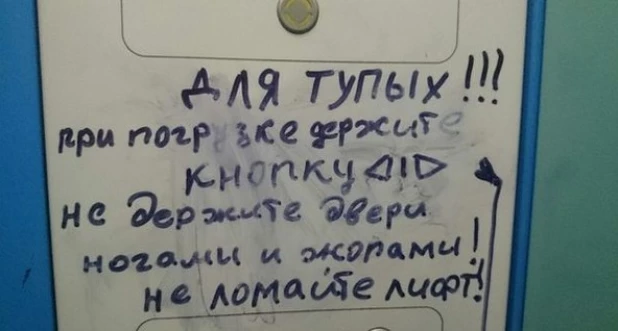 ДЛЯ ТУПЫХ!!!
при погрузке держите
кнопку ◁I▷
не держите двери
ногами и жопами!
не ломайте лифт!